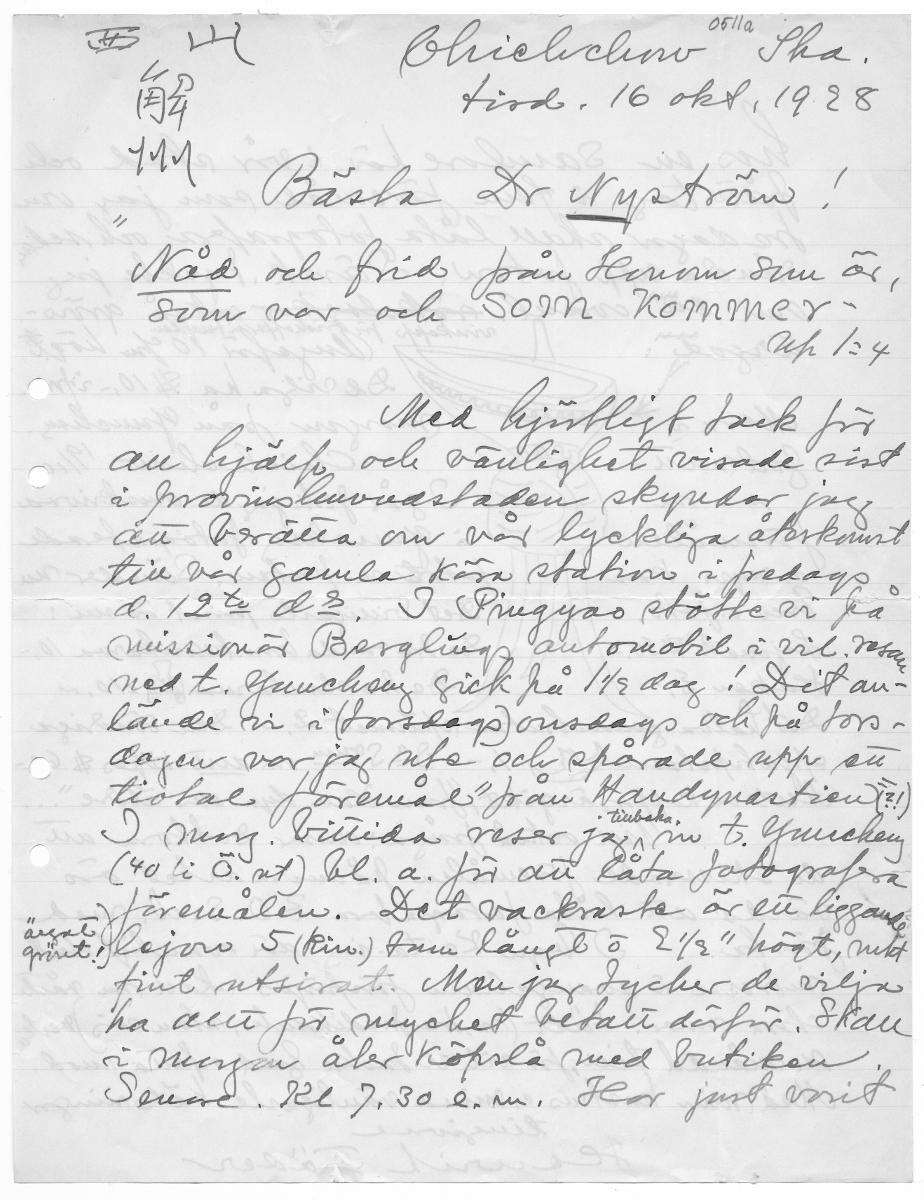 0511a
西 山
解
州
Chiehchow Sha.
tisd. 16 okt. 1928
Bästa Dr Nyström!
"Nåd och frid från Honom som är,
som var och SOM KOMMER -
Up 1:4
Med hjärtligt tack för
all hjälp och vänlighet visade sist
i provinshuvudstaden skyndar jag
att berätta om vår lyckliga återkomst
till vår gamla kära station i fredags
d. 12te ds. I Pingyao stötte vi på
missionär Berglings automobil i vil. resan
ned t. Yuncheng gick på 1 1/2 dag! Dit an-
lände vi i (torsdags) onsdags och på tors-
dagen var jag ute och spårade upp ett
tiotal "föremål" från Handynastien (?!)
I morg. bittida reser jag tillbaka in t. Yuncheng
(40 li Ö. ut) bl. a. för att låta fotografera
föremålen. Det vackraste är ett liggande
ärgat grönt! lejon 5 (kin.) tum långt o 2 1/2" högt, mkt
fint utsirat. Men jag tycker de vilja
ha allt för mycket betalt därför. Skall
i morgon åter köpslå med butiken.
Senare. Kl 7.30 e.m. Har just varit